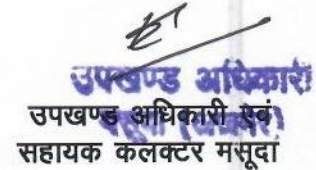 उपखण्ड अधिकारी
उपखण्ड अधिकारी एवं
सहायक कलक्टर मसूदा